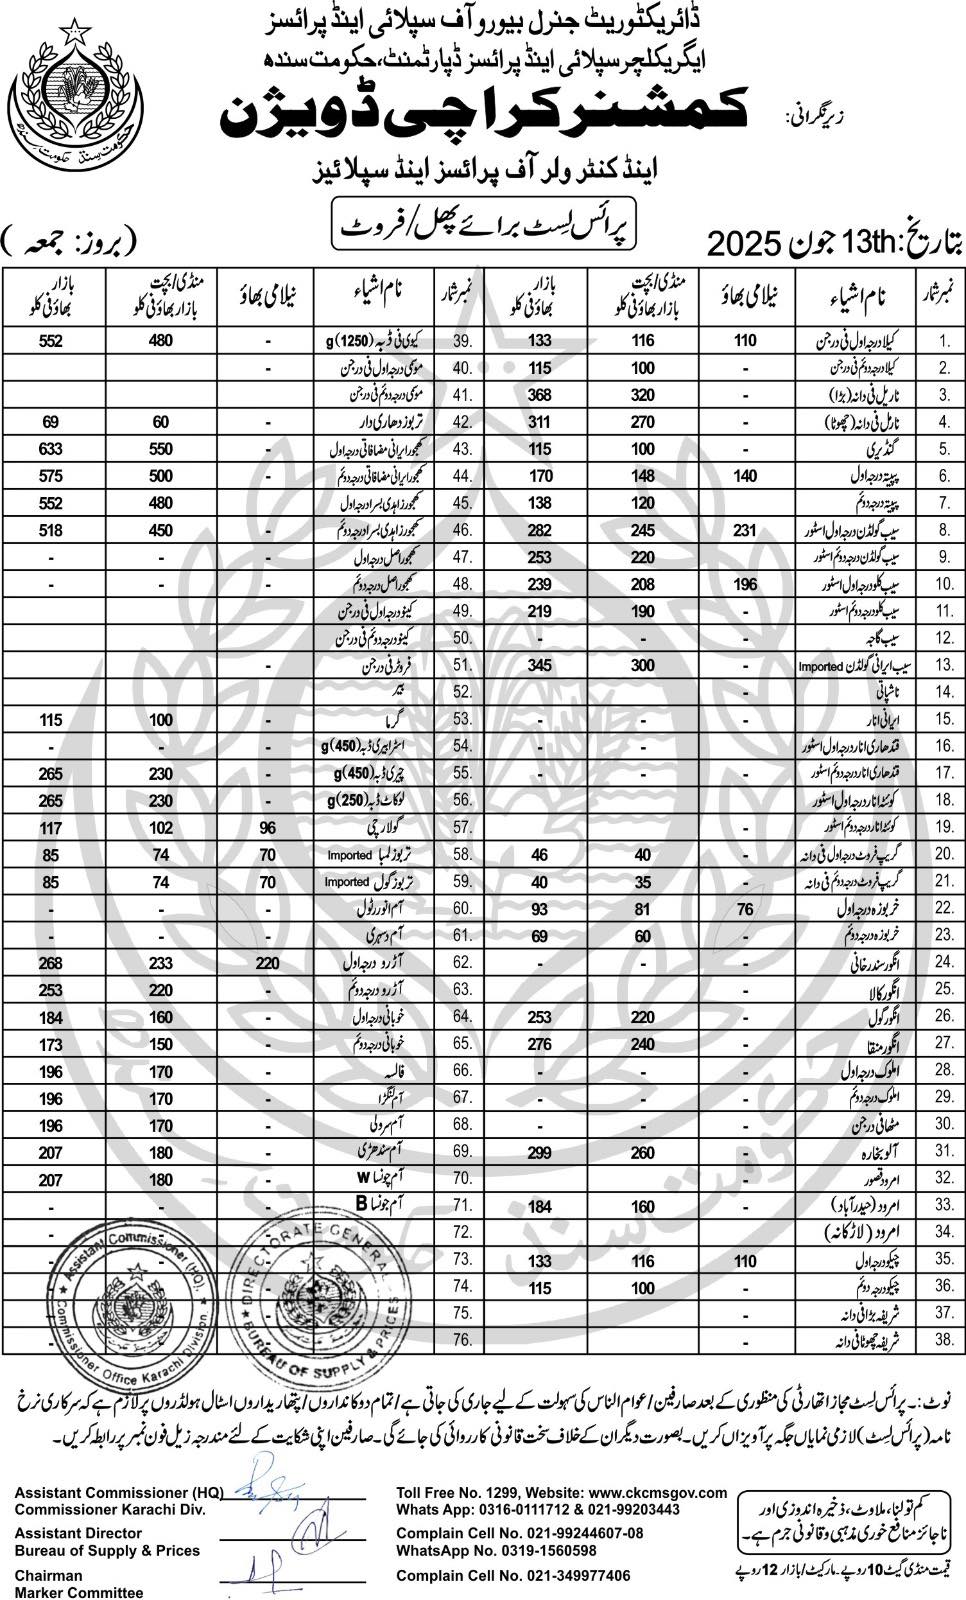 ڈائریکٹوریٹ جنرل بیورو آف سپلائی اینڈ پرائسز
ایگریکلچر سپلائی اینڈ پرائسز ڈپارٹمنٹ، حکومت سندھ
زیرِ نگرانی: کمشنر کراچی ڈویژن
اینڈ کنٹرولر آف پرائسز اینڈ سپلائیز
پرائس لسٹ برائے پھل/فروٹ
بتاریخ: 13th جون 2025
(بروز: جمعہ)
نمبر شمار نام اشیاء نیلامی بھاؤ منڈی/بچت بازار بھاؤ فی کلو بازار بھاؤ فی کلو
1. کیلا درجہ اول فی درجن 110 116 133
2. کیلا درجہ دوئم فی درجن - 100 115
3. ناریل فی دانہ (بڑا) - 320 368
4. ناریل فی دانہ (چھوٹا) - 270 311
5. گنڈیری - 100 115
6. پپیتہ درجہ اول 140 148 170
7. پپیتہ درجہ دوئم - 120 138
8. سیب گولڈن درجہ اول اسٹور 231 245 282
9. سیب گولڈن درجہ دوئم اسٹور - 220 253
10. سیب کلو درجہ اول اسٹور 196 208 239
11. سیب کلو درجہ دوئم اسٹور - 190 219
12. سیب گاجہ - - -
13. سیب ایرانی گولڈن Imported - 300 345
14. ناشپاتی -
15. ایرانی انار - - -
16. قندھاری انار درجہ اول اسٹور - - -
17. قندھاری انار درجہ دوئم اسٹور - - -
18. کوئٹہ انار درجہ اول اسٹور -
19. کوئٹہ انار درجہ دوئم اسٹور -
20. گریپ فروٹ درجہ اول فی دانہ - 40 46
21. گریپ فروٹ درجہ دوئم فی دانہ - 35 40
22. خربوزہ درجہ اول 76 81 93
23. خربوزہ درجہ دوئم - 60 69
24. انگور سندرخانی - - -
25. انگور کالا -
26. انگور گول - 220 253
27. انگور منقا - 240 276
28. املوک درجہ اول - - -
29. املوک درجہ دوئم - - -
30. مٹھا فی درجن - - -
31. آلو بخارہ - 260 299
32. امرود قصور -
33. امرود (حیدرآباد) - 160 184
34. امرود (لاڑکانہ) -
35. چیکو درجہ اول 110 116 133
36. چیکو درجہ دوئم - 100 115
37. شریفہ بڑا فی دانہ -
38. شریفہ چھوٹا فی دانہ -
نمبر شمار نام اشیاء نیلامی بھاؤ منڈی/بچت بازار بھاؤ فی کلو بازار بھاؤ فی کلو
39. کیوی فی ڈبہ (1250)g - 480 552
40. موسمی درجہ اول فی درجن -
41. موسمی درجہ دوئم فی درجن
42. تربوز دھاری دار - 60 69
43. کھجور ایرانی مضافاتی درجہ اول - 550 633
44. کھجور ایرانی مضافاتی درجہ دوئم - 500 575
45. کھجور زاہدی بسرا درجہ اول - 480 552
46. کھجور زاہدی بسرا درجہ دوئم - 450 518
47. کھجور اصل درجہ اول - - -
48. کھجور اصل درجہ دوئم - - -
49. کینو درجہ اول فی درجن -
50. کینو درجہ دوئم فی درجن
51. فروٹر فی درجن -
52. بیر
53. گرما - 100 115
54. اسٹرابیری ڈبہ (450)g - - -
55. چیری ڈبہ (450)g - 230 265
56. لوکاٹ ڈبہ (250)g - 230 265
57. گولارچی 96 102 117
58. تربوز لمبا Imported 70 74 85
59. تربوز گول Imported 70 74 85
60. آم انور رٹول - - -
61. آم دسہری - - -
62. آڑو درجہ اول 220 233 268
63. آڑو درجہ دوئم - 220 253
64. خوبانی درجہ اول - 160 184
65. خوبانی درجہ دوئم - 150 173
66. فالسہ - 170 196
67. آم لنگڑا - 170 196
68. آم سرولی - 170 196
69. آم سندھڑی - 180 207
70. آم چونسا W - 180 207
71. آم چونسا B - - -
72.
73.
74.
75.
76.
Assistant Commissioner (HQ). Commissioner Office Karachi Division.
DIRECTORATE GENERAL BUREAU OF SUPPLY & PRICES
نوٹ:۔ پرائس لسٹ مجاز اتھارٹی کی منظوری کے بعد صارفین/عوام الناس کی سہولت کے لیے جاری کی جاتی ہے/تمام دوکانداروں/پتھاریداروں اسٹال ہولڈروں پر لازم ہے کہ سرکاری نرخ
نامہ (پرائس لسٹ) لازمی نمایاں جگہ پر آویزاں کریں۔ بصورت دیگر ان کے خلاف سخت قانونی کارروائی کی جائے گی۔ صارفین اپنی شکایت کے لئے مندرجہ زیل فون نمبر پر رابطہ کریں۔
Assistant Commissioner (HQ)
Commissioner Karachi Div.
Assistant Director
Bureau of Supply & Prices
Chairman
Marker Committee
Toll Free No. 1299, Website: www.ckcmsgov.com
Whats App: 0316-0111712 & 021-99203443
Complain Cell No. 021-99244607-08
WhatsApp No. 0319-1560598
Complain Cell No. 021-349977406
کم تولنا، ملاوٹ، ذخیرہ اندوزی اور
ناجائز منافع خوری مذہبی و قانونی جرم ہے۔
قیمت منڈی گیٹ 10 روپے۔ مارکیٹ/بازار 12 روپے